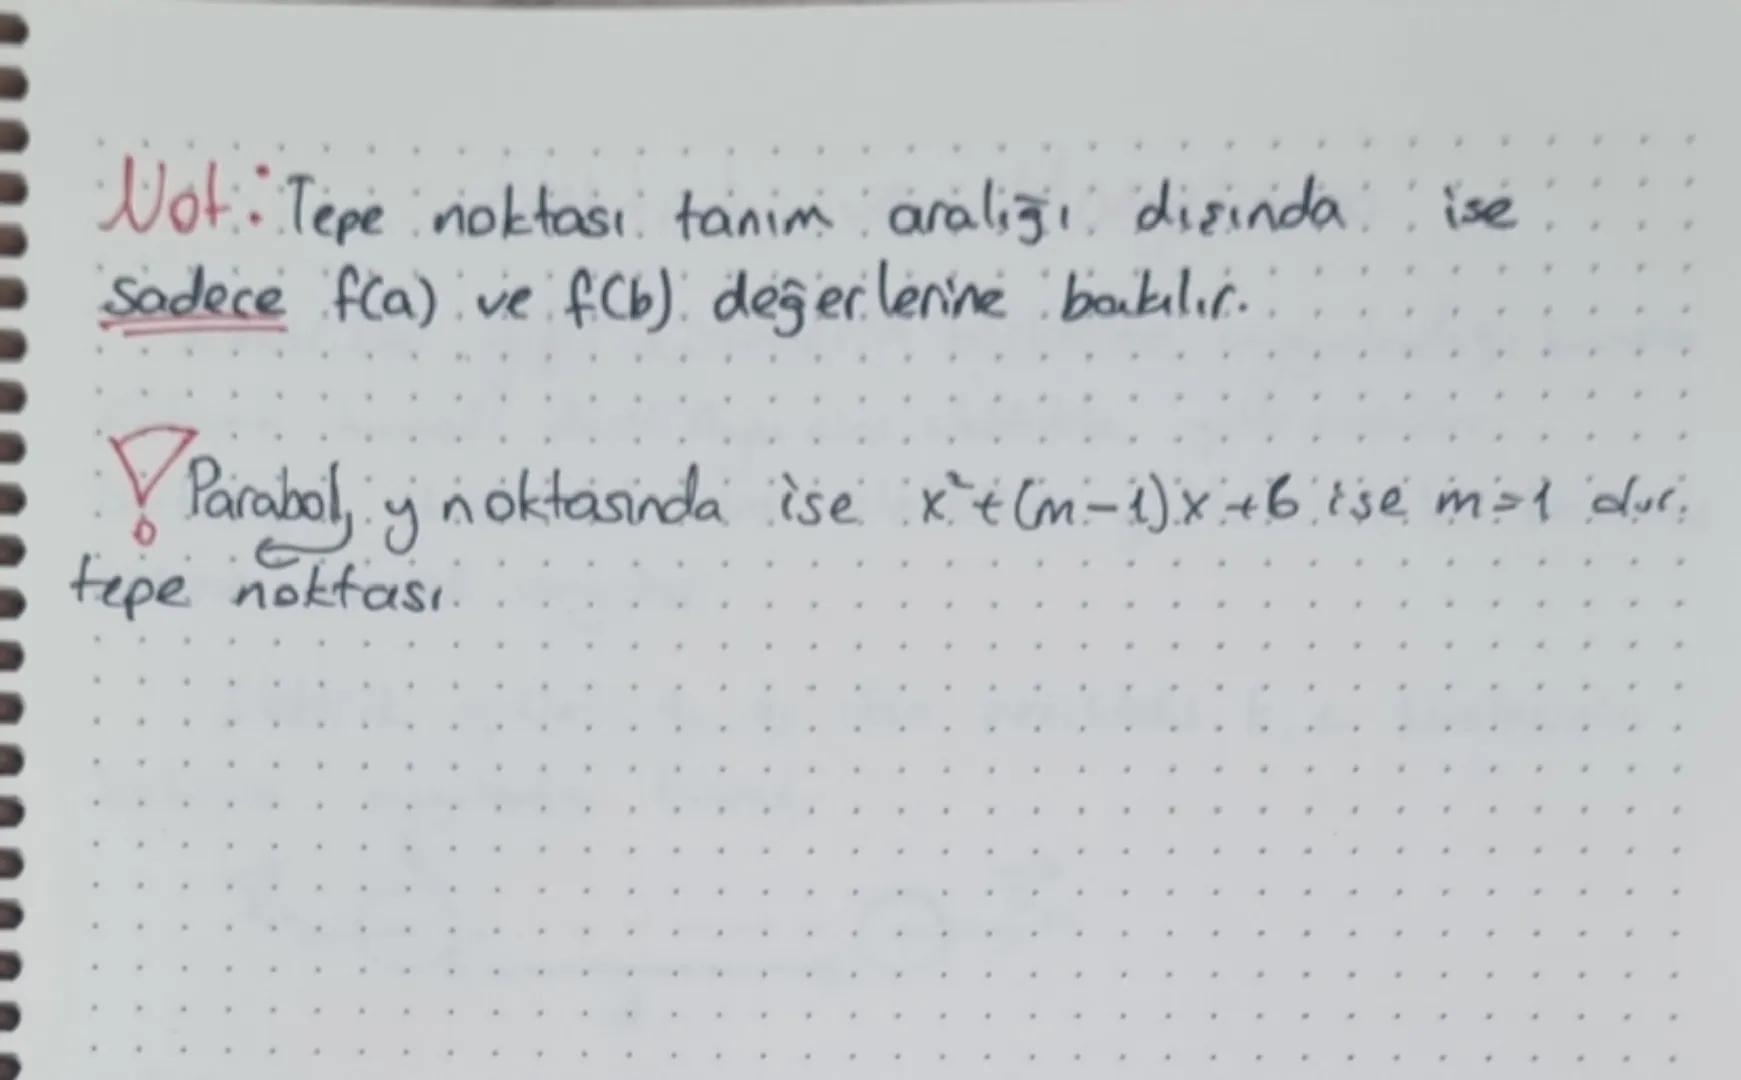 Not: Tepe noktası tanım aralığı dışında ise
sadece f(a) ve f(b) değerlerine bakılır.
! Parabol, y noktasında ise x²+(m-1)x+6 ise m=1 dur.
tepe noktası